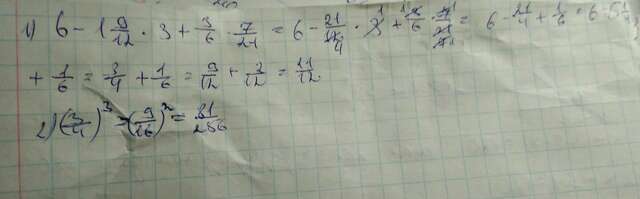 1) 6 - 1 9/12 · 3 + 3/6 · 7/21 = 6 - 21/12 4 · 3 1 + 1 3/6 · 7 1/21 = 6 - 21/4 + 1/6 = 6 - 5 1/4
+ 1/6 = 3/4 + 1/6 = 9/12 + 2/12 = 11/12
2) (3/4)^3 = (9/26)^2 = 81/256